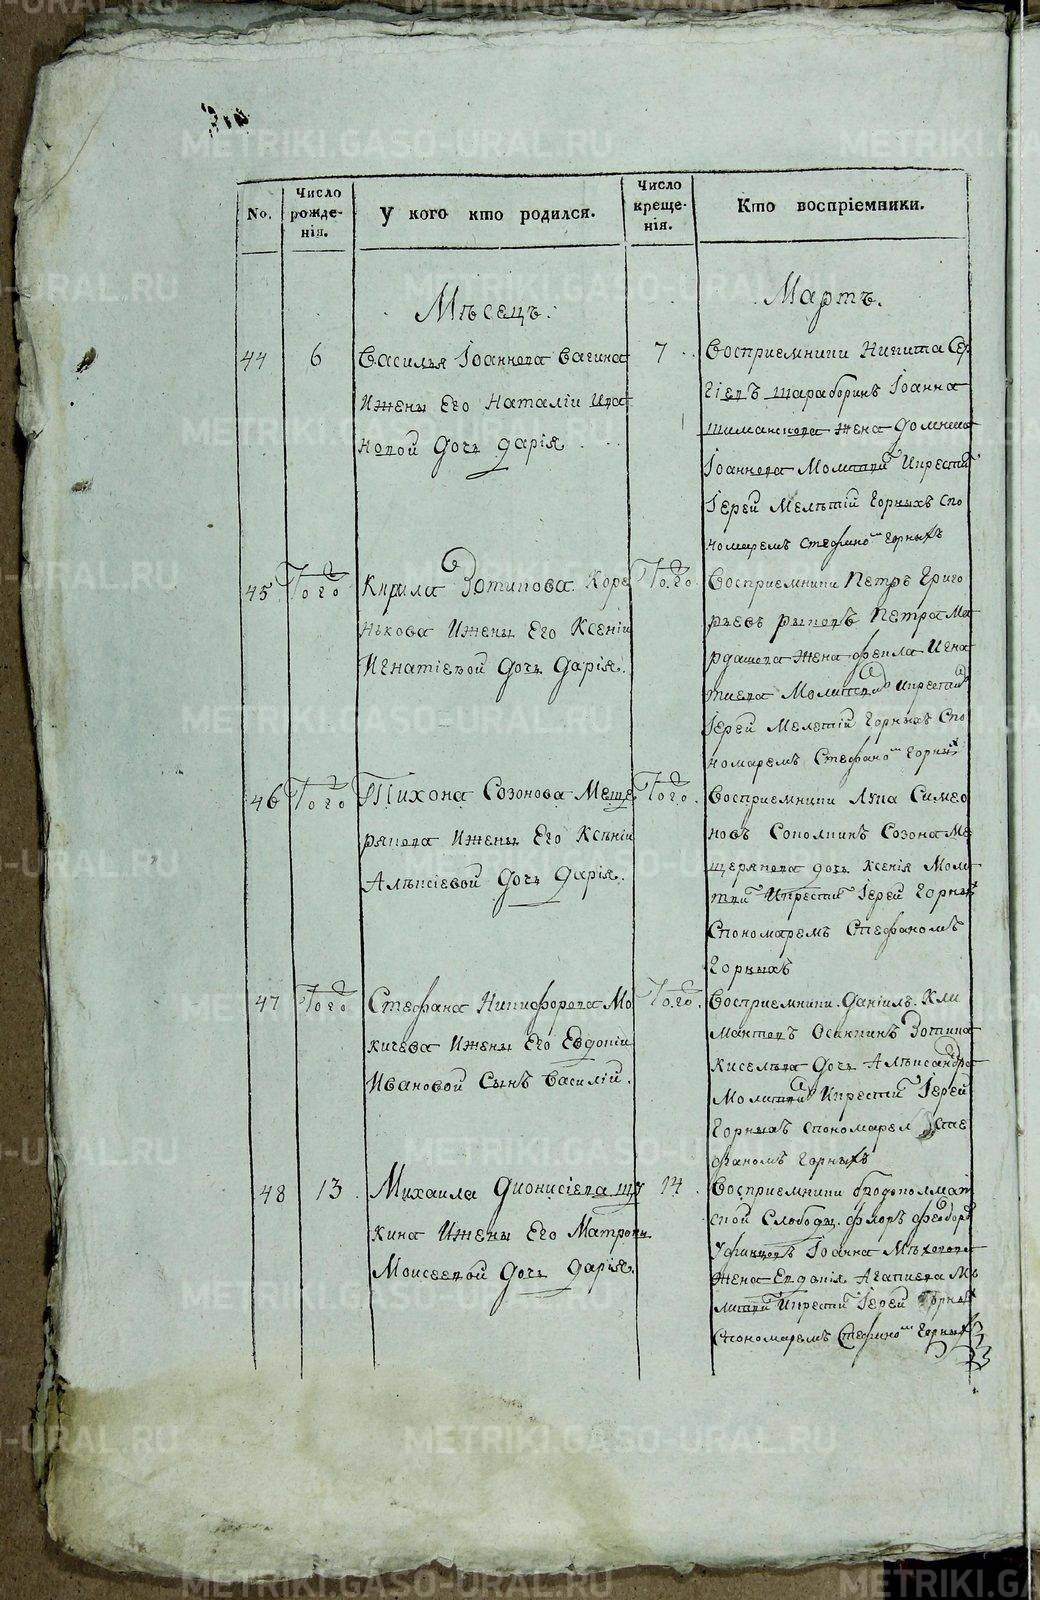 No.
Число рожде-нія.
У кого кто родился.
Число креще-нія.
Кто воспріемники.
Мѣсецъ.
Мартъ.
44
6
Василья Іоаннова Вагина
Ижены Его Наталіи Ива
новой дочь дарія
7
Восприемники Никита Сер
гіевъ шараборинъ Іоанна
жена домника
Іоаннова Молитвил Икрестил
Іерей Мелѣтій Горныхъ спо
номаремъ стефаномъ горныхъ
45
Того
Кирила Зотикова. Коре
нькова Ижены Его Ксеніи
Игнатіевой дочь дарія.
Того.
Восприемники Петръ Григо
рьевъ рыковъ Петра Ма
рдашова жена фекла Игна
тиева Молитвил Икрестил
Іерей Мелетій Горныхъ Спо
номаремъ Стефаномъ Горныхъ
46
Того
Тихона Созонова Меще
рякова Ижены Его Ксѣніи
Алѣксіевой дочь дарія.
Того.
Восприемники Лука Симео
новъ Соломкинъ Созона Ме
щерякова дочь Ксенія Моли
твил Икрестил Іерей Горныхъ
Спономаремъ Стефаномъ
Горныхъ
47
Того
Стефана Никифорова Мо
кичева Ижены Его Евдокіи
Ивановой Сынъ Василій.
Того.
Восприемники. даніилъ. Кли
мантовъ Осинкинъ Зотика
киселѣва дочь Алѣксандра
Молитвил Икрестил Іерей
Горныхъ спономарем Сте
фаномъ горныхъ
48
13
Михаила дионисіева щу
кина Ижены Его Матроны
Моисеевой дочь дарія.
14
Восприемники бродоколмат
ской Слободы. флоръ феодоро
Уфинцовъ Іоанна Мѣхонова
жена Евдокія Агапиева Мо
литвил Икрестил Іерей Горныхъ
Спономаремъ Стефаномъ Горныхъ
METRIKI.GASO-URAL.RU